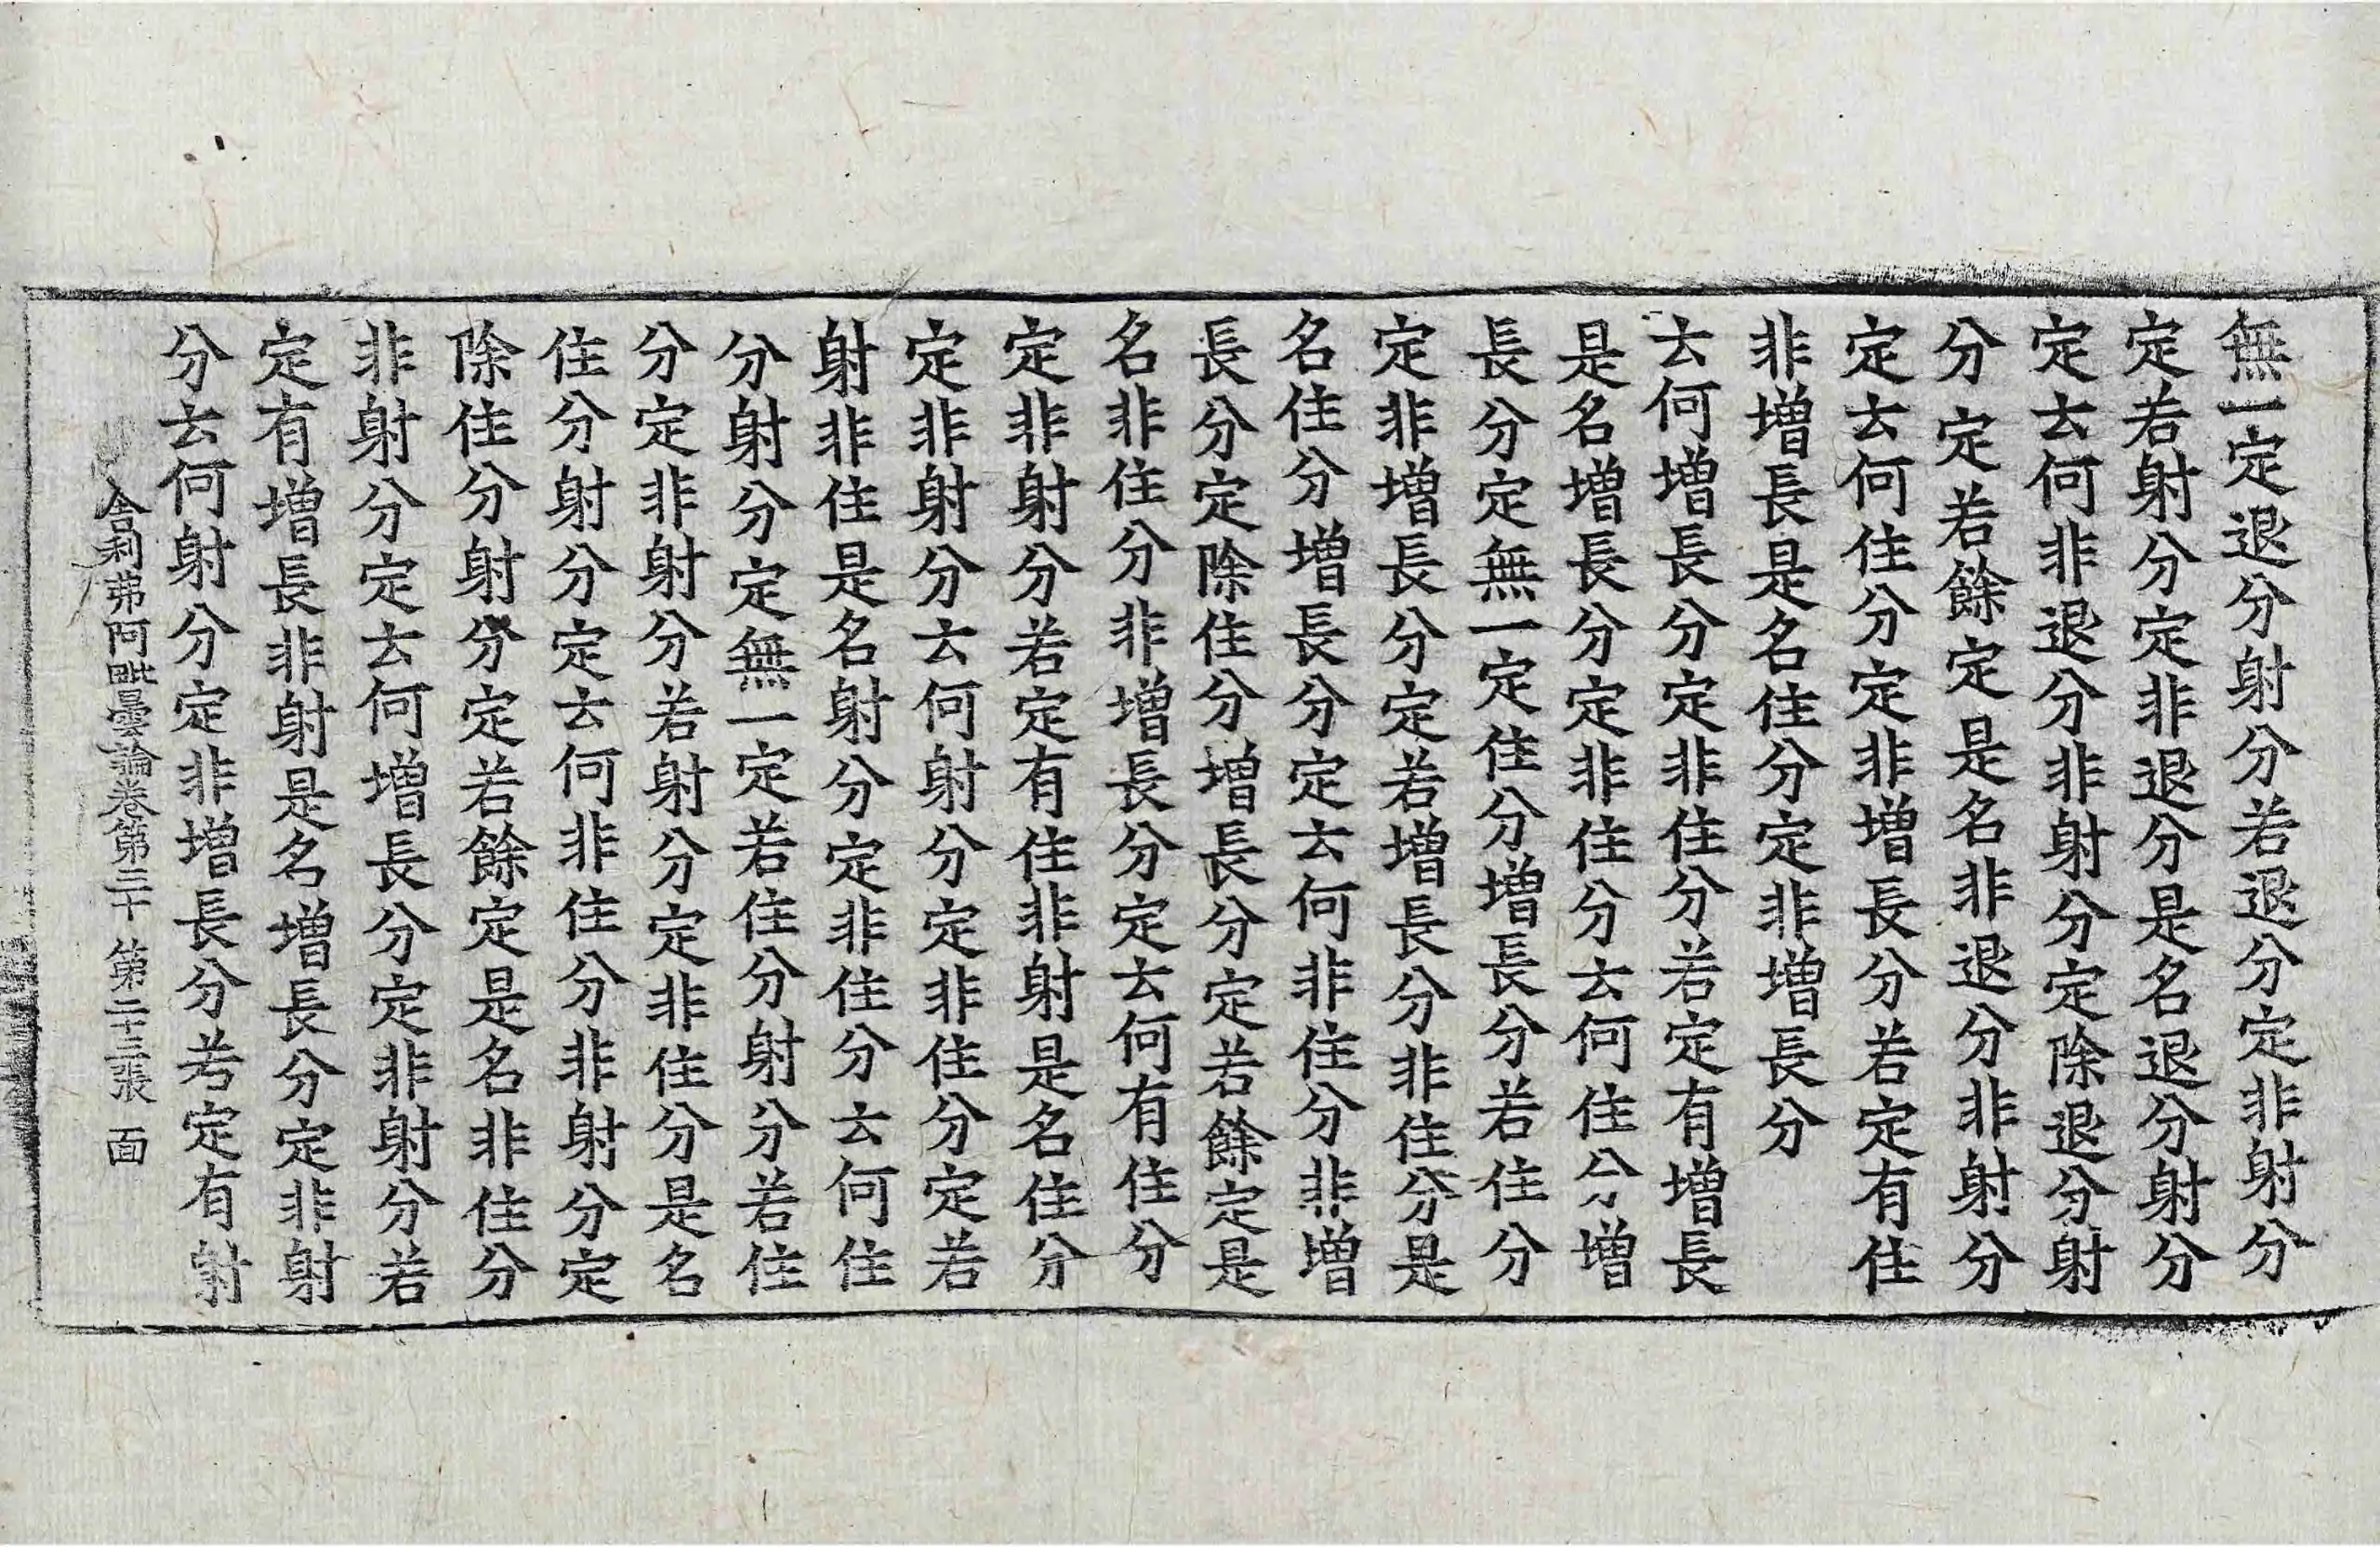 無一定退分射分若退分定非射分
定若射分定非退分是名退分射分
定云何非退分非射分定除退分射
分定若餘定是名非退分非射分
定云何住分定非增長分若定有住
非增長是名住分定非增長分
云何增長分定非住分若定有增長
是名增長分定非住分云何住分增
長分定無一定住分增長分若住分
定非增長分定若增長分非住分是
名住分增長分定云何非住分非增
長分定除住分增長分定若餘定是
名非住分非增長分定云何有住分
定非射分若定有住非射是名住分
定非射分云何射分定非住分定若
射非住是名射分定非住分云何住
分射分定無一定若住分射分若住
分定非射分若射分定非住分是名
住分射分定云何非住分非射分定
除住分射分定若餘定是名非住分
非射分定云何增長分定非射分若
定有增長非射是名增長分定非射
分云何射分定非增長分若定有射
舍利弗阿毗曇論卷第三十 第二十三張 面